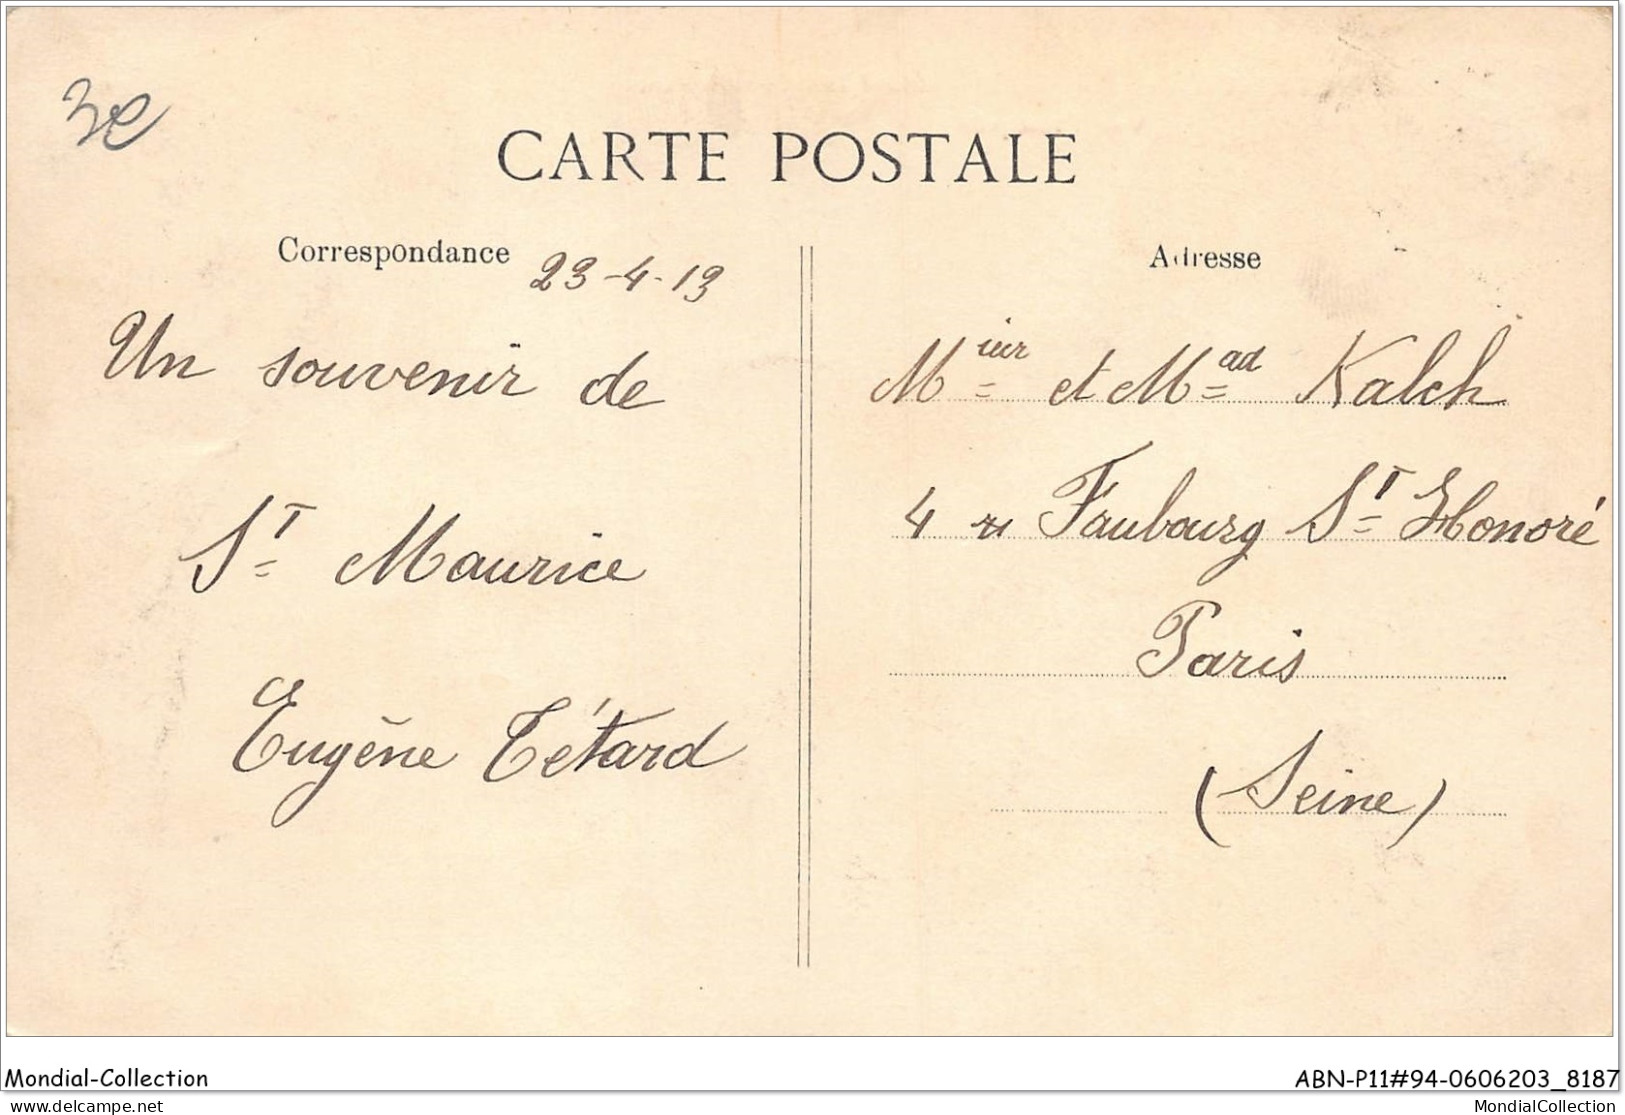 3e
CARTE POSTALE
Correspondance 23-4-13
Un souvenir de
St Maurice
Eugène Tétard
Adresse
Mieur et Mad Kalch
4 Faubourg St Honoré
Paris
(Seine)
Mondial-Collection
ABN-P11#94-0606203_8187
delcampe.net
MondialCollection